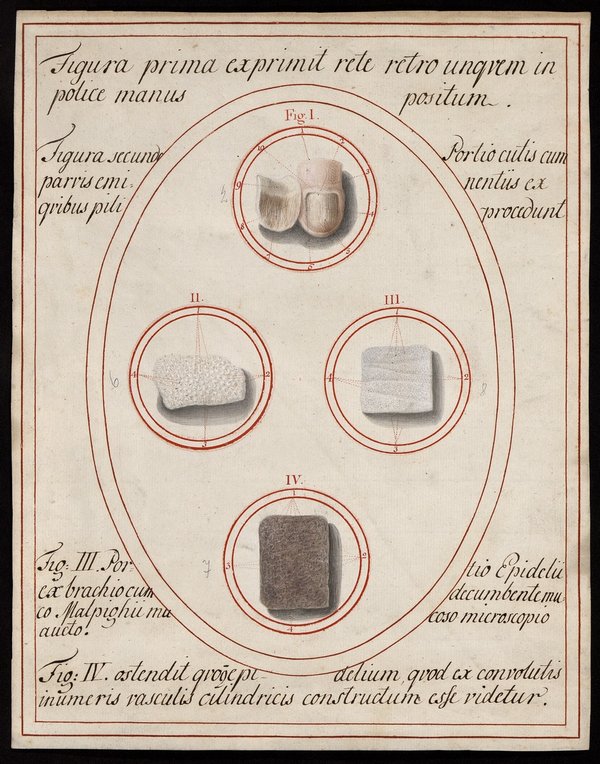 Figura prima exprimit rete retro unqvem in
police manus positum.
Fig. I.
Figura secunda Portio cutis cum
parris emi- nentiis ex
qvibus pili procedunt
1
2
3
4
5
6
7
8
9
10
2
II.
1
2
3
4
6
III.
1
2
3
4
8
IV.
1
2
3
4
7
Fig: III. Por- tio Epidelii
ex brachio cum decumbente mu-
co Malpighii mu coso microscopio
aucto.
Fig: IV. ostendit epi- delium, qvod ex convolutis
inumeris vasculis cilindricis constructum esse videtur.